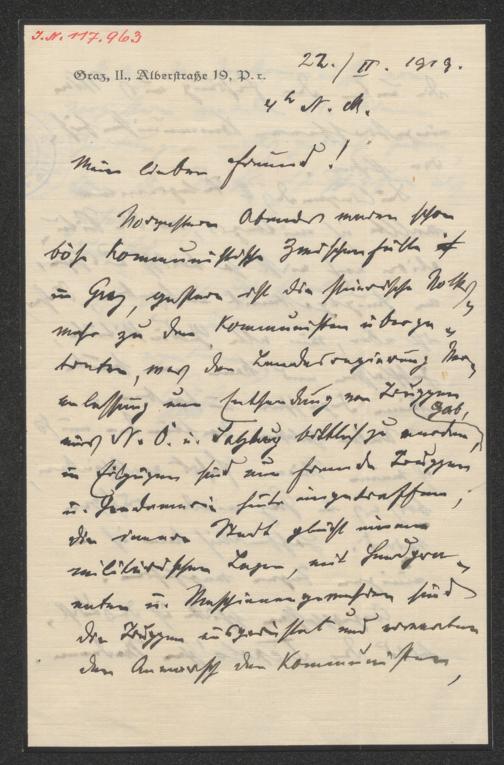 I.N. 117.963
Graz, II., Alberstraße 19, P. r.
22./II. 1919.
4h N. M.
Mein lieber Freund!
Vorgestern Abends waren schon
böse kommunistische Zwischenfälle
in Graz, gestern ist die steirische Volks„
wehr zu den Kommunisten überge„
treten, was der Landesregierung Ver„
anlassung um Entsendung von Truppen
gab,
aus N. Ö. u. Salzburg bittlich zu werden,
in Eilzügen sind nun fremde Truppen
u. Gendarmerie heute eingetroffen,
die innere Stadt gleicht einem
militärischen Lager, mit Handgra„
naten u. Maschinengewehren sind
die Truppen ausgerüstet und erwarten
den Anmarsch der Kommunisten,